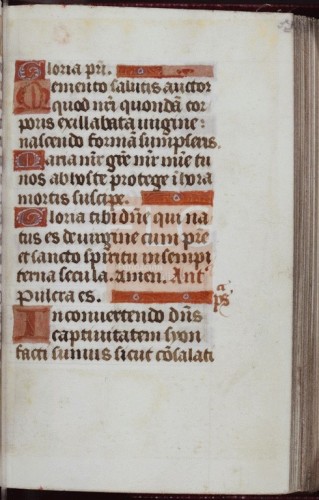 Gloria pr̄i.
Memento salutis auctor
quod nr̄i quondā cor
poris ex illabata uirgine:
nascendo formā sumpseris.
Maria mr̄ gr̄e mr̄ mīe tu
nos ab hoste protege ī hora
mortis suscipe.
Gloria tibi dn̄e qui na
tus es de uirgine cum pr̄e
et sancto spiritu in sempi
terna secula. Amen. Ant̄
Pulcra es.
ps̄
In conuertendo dn̄s
captiuitatem syon
facti sumus sicut cōsolati